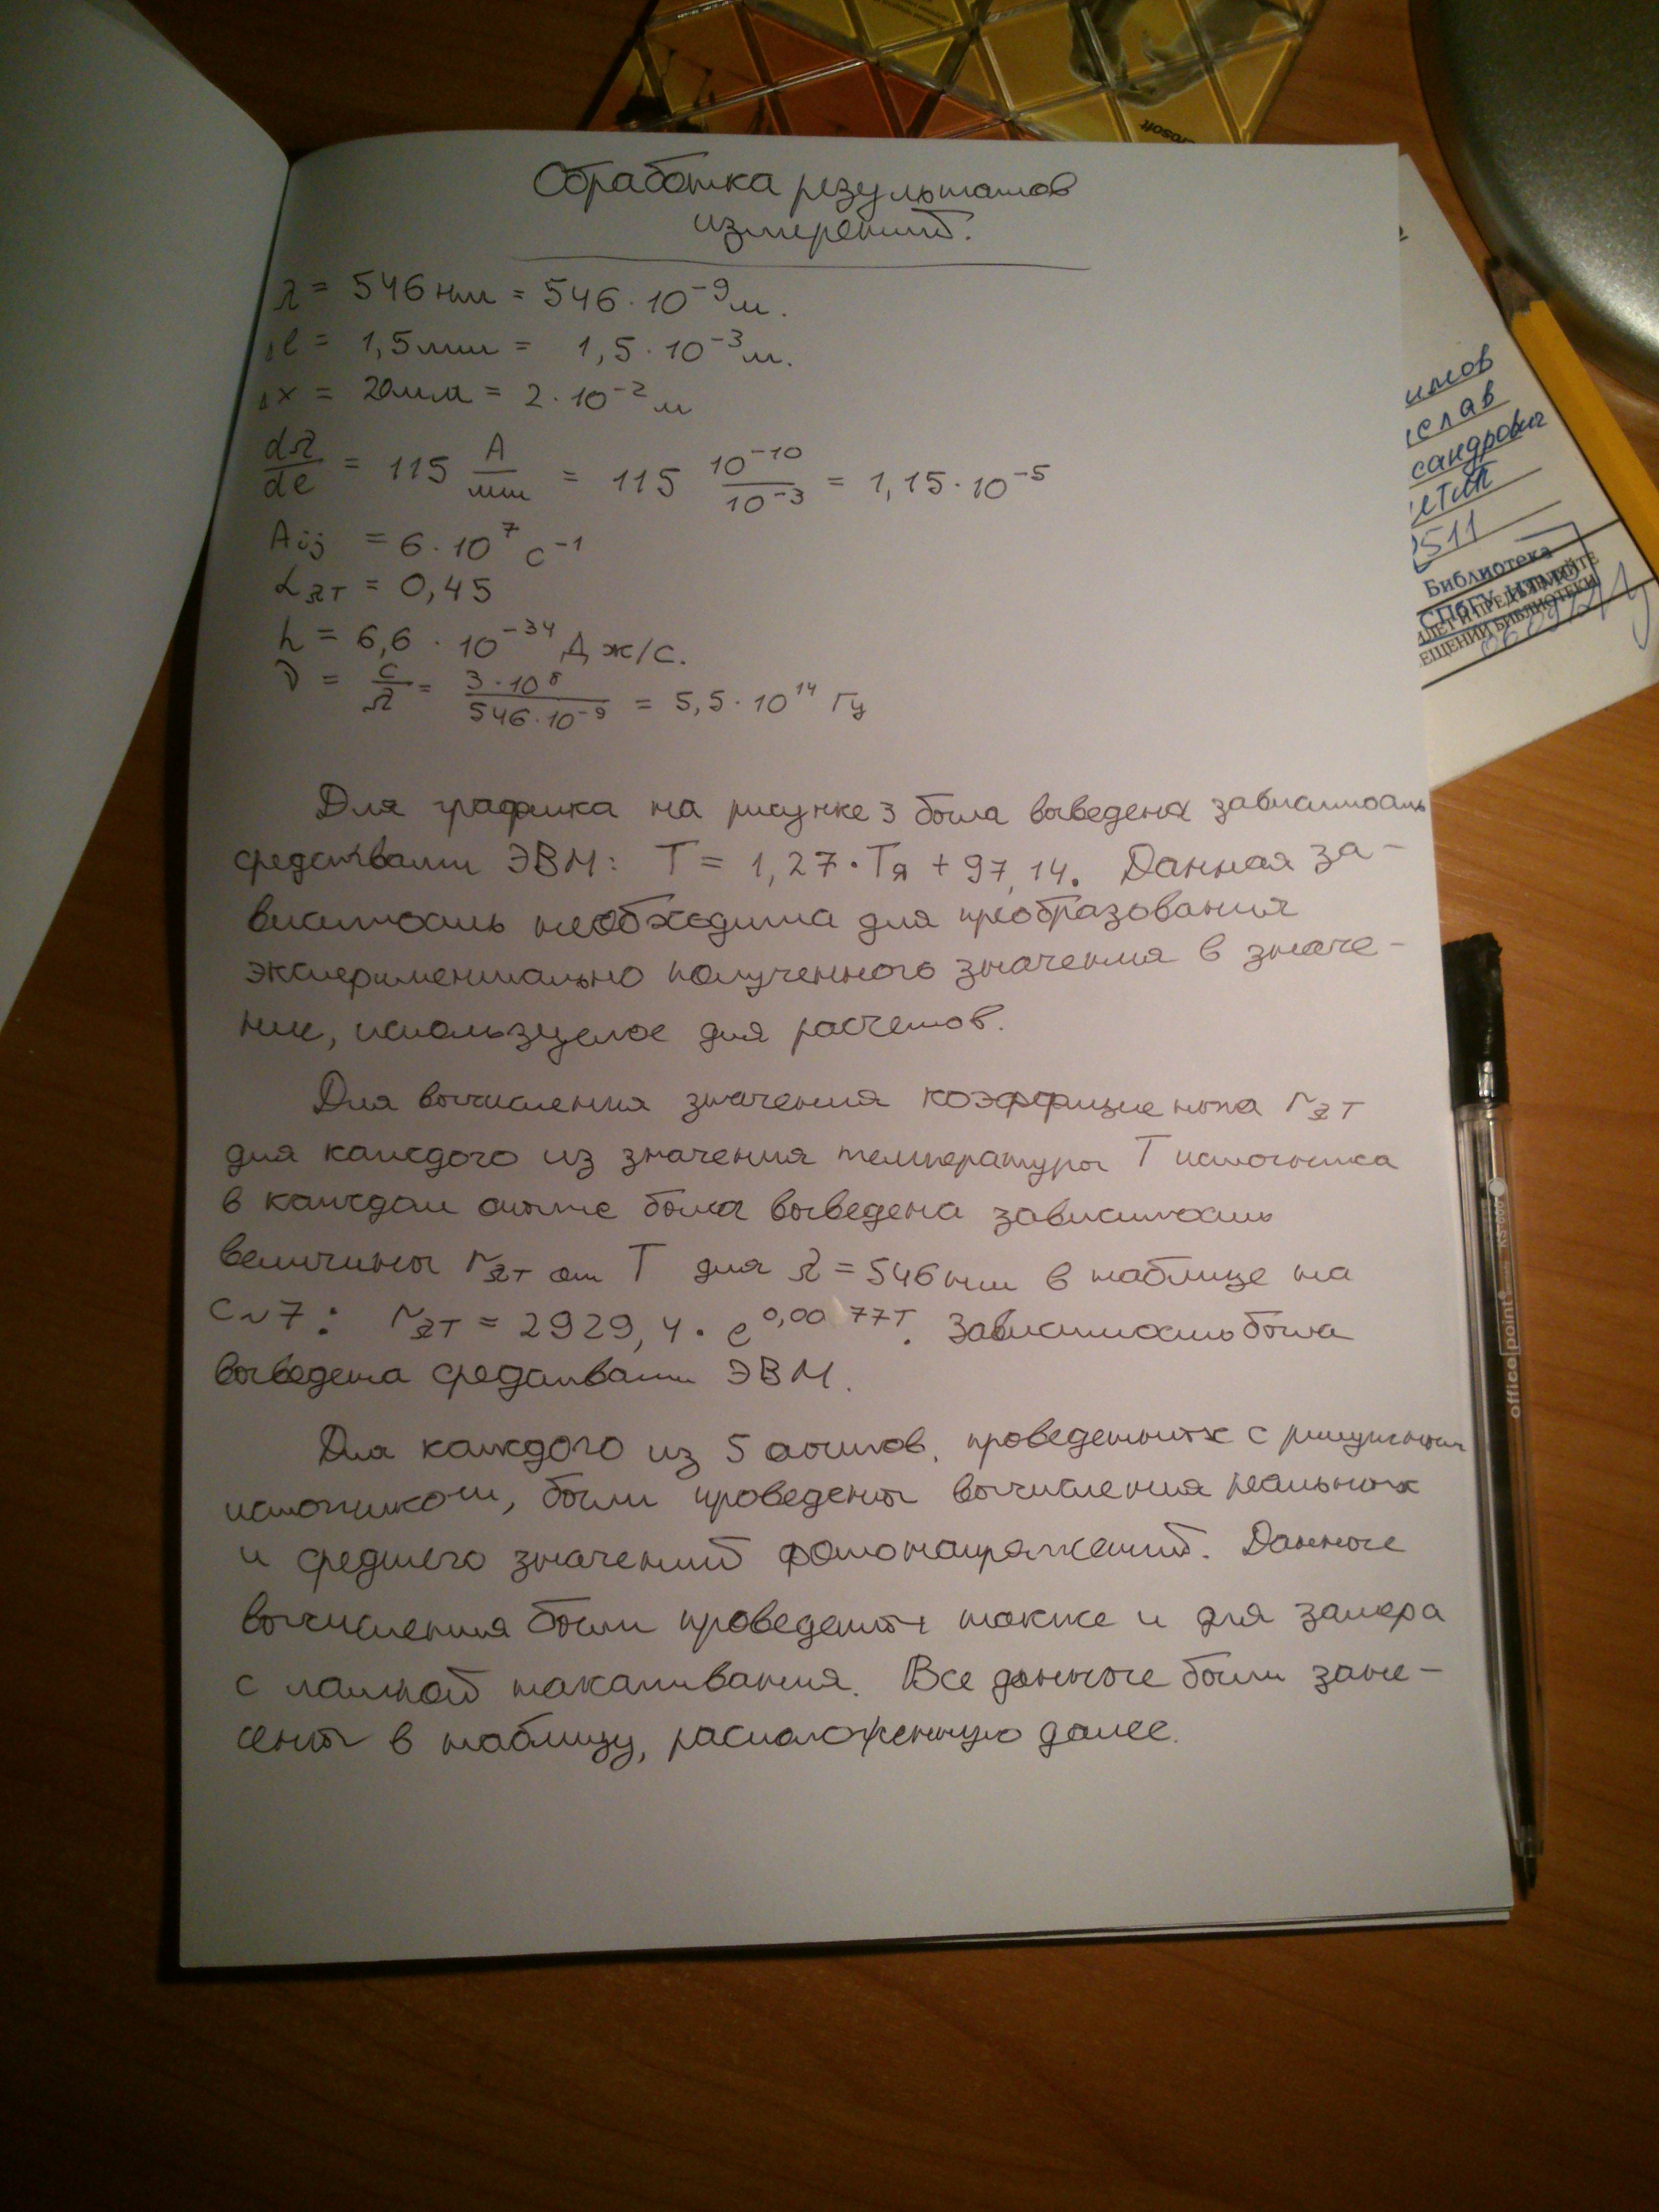 Обработка результатов
измерений.
λ = 546 нм = 546 · 10⁻⁹ м.
Δl = 1,5 мм = 1,5 · 10⁻³ м.
Δx = 20 мм = 2 · 10⁻² м
dλ/dl = 115 А/мм = 115 10⁻¹⁰/10⁻³ = 1,15 · 10⁻⁵
Aij = 6 · 10⁷ с⁻¹
α_λT = 0,45
h = 6,6 · 10⁻³⁴ Дж/с.
ν = c/λ = 3 · 10⁸/546 · 10⁻⁹ = 5,5 · 10¹⁴ Гц
Для графика на рисунке 3 была выведена зависимость
средствами ЭВМ: T = 1,27 · Tя + 97,14. Данная за-
висимость необходима для преобразования
экспериментально полученного значения в значе-
ние, используемое для расчетов.
Для вычисления значения коэффициента r_λT
для каждого из значения температуры T источника
в каждом опыте была выведена зависимость
величины r_λT от T для λ = 546 нм в таблице на
с~7: r_λT = 2929,4 · e^0,0077T. Зависимость была
выведена средствами ЭВМ.
Для каждого из 5 опытов, проведенных с ртутным
источником, были проведены вычисления реальных
и среднего значений фотонапряжений. Данные
вычисления были проведены также и для замера
с лампой накаливания. Все данные были зане-
сены в таблицу, расположенную далее.
rosoft
имов
еслав
сандрович
2511
Библиотека
СПбГУ ИТМО
ЕЩЕНИИ БИБЛИОТЕКИ
officepoint